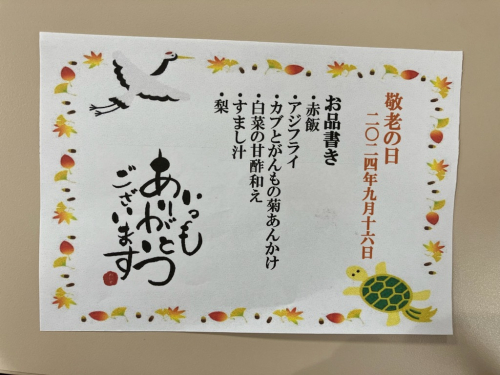 敬老の日
二〇二四年九月十六日
お品書き
・赤飯
・アジフライ
・カブとがんもの菊あんかけ
・白菜の甘酢和え
・すまし汁
・梨
いつも
ありがとう
ございます